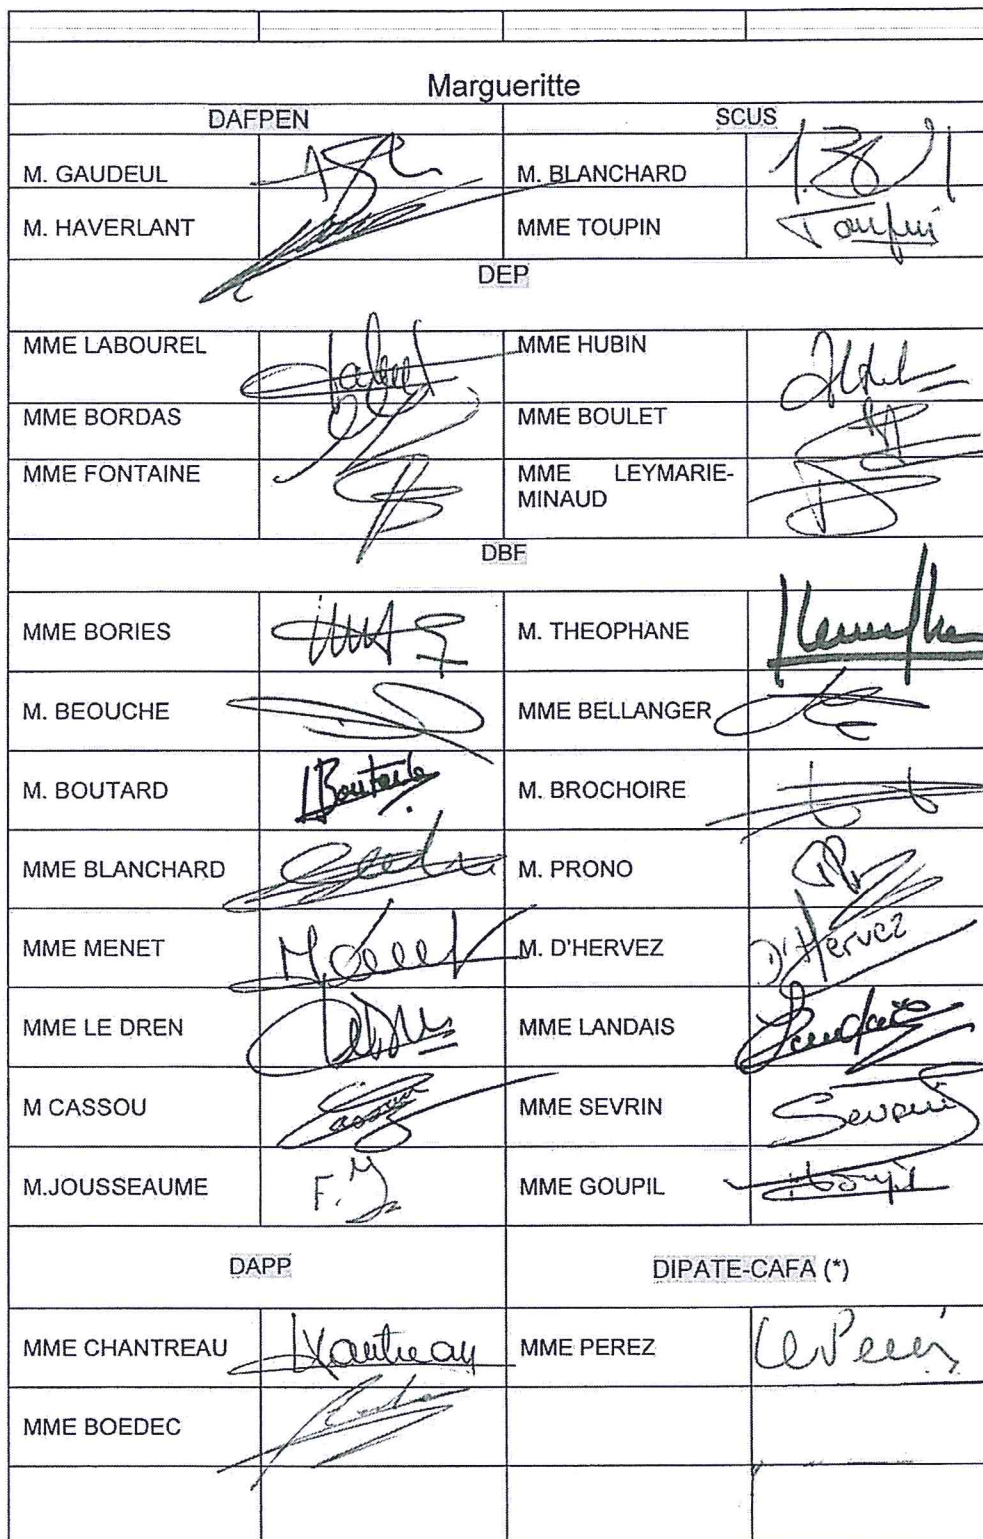 Margueritte
DAFPEN SCUS
M. GAUDEUL M. BLANCHARD
M. HAVERLANT MME TOUPIN Toupin
DEP
MME LABOUREL MME HUBIN
MME BORDAS MME BOULET
MME FONTAINE MME LEYMARIE-
MINAUD
DBF
MME BORIES M. THEOPHANE
M. BEOUCHE MME BELLANGER
M. BOUTARD M. BROCHOIRE
MME BLANCHARD M. PRONO
MME MENET M. D'HERVEZ D'Hervez
MME LE DREN MME LANDAIS Landais
M CASSOU Cassou MME SEVRIN
M.JOUSSEAUME F. J MME GOUPIL Goupil
DAPP DIPATE-CAFA (*)
MME CHANTREAU MME PEREZ
MME BOEDEC